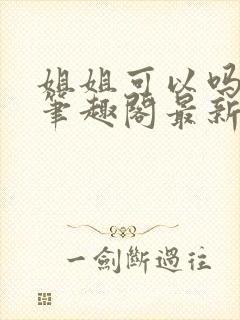 姐姐可以吗
笔趣阁最新
一剑断过往